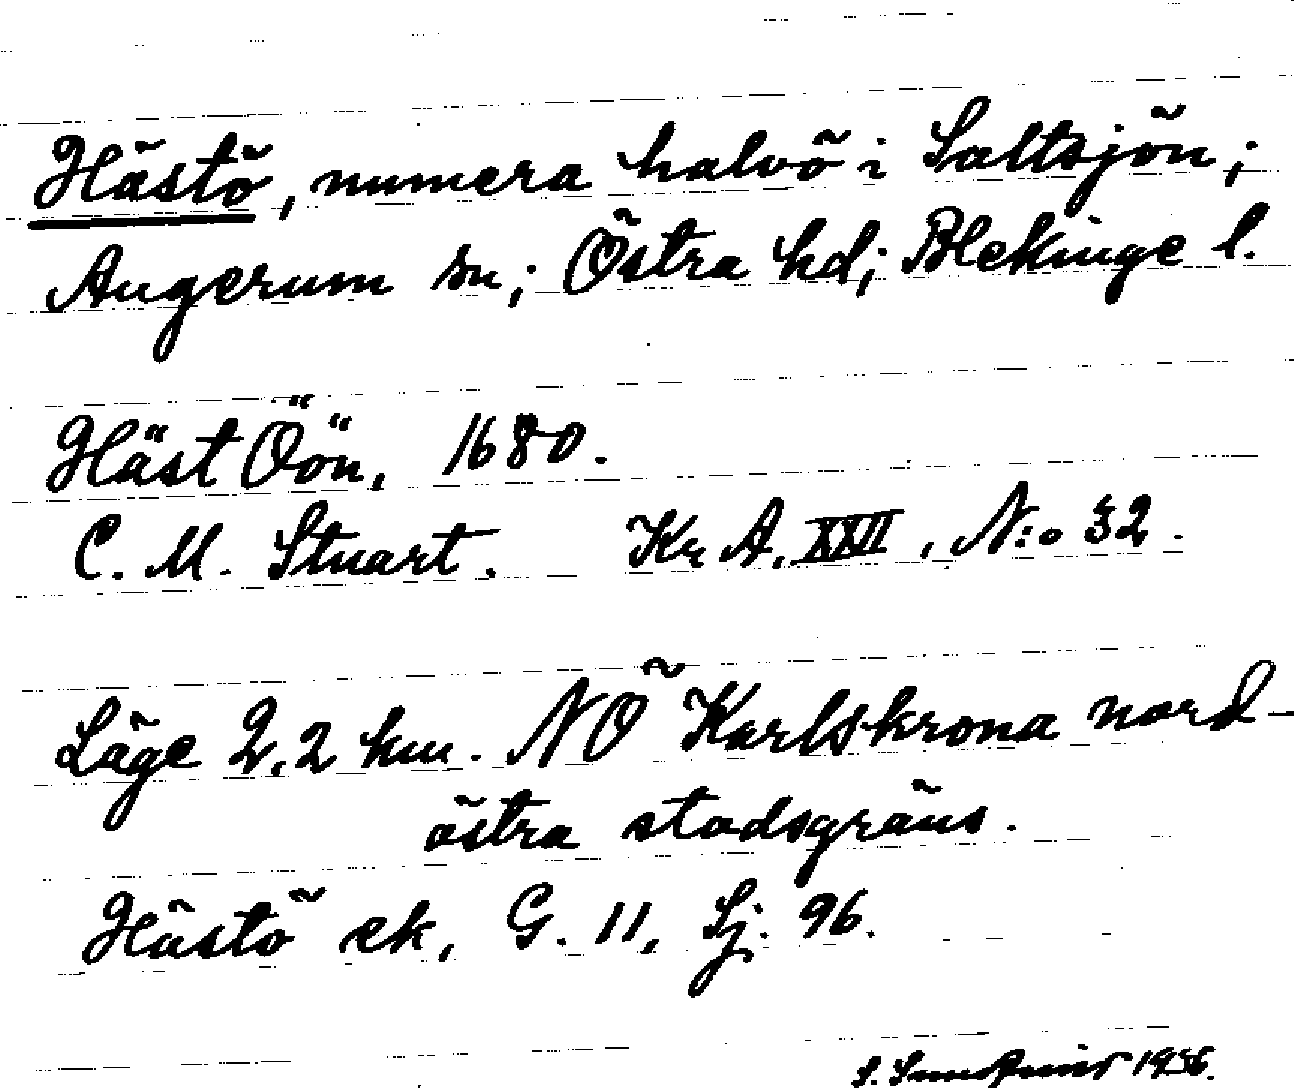 Hästö, numera halvö i Saltsjön;
Augerum sn; Östra hd; Blekinge l.
Häst Öön, 1680.
C. M. Stuart. Kr A. XXII, N:o 32.
Läge 2,2 km. NÖ Karlskrona nord-
östra stadsgräns.
Hästö ek, G. 11, Sj. 96.
S. 1956.